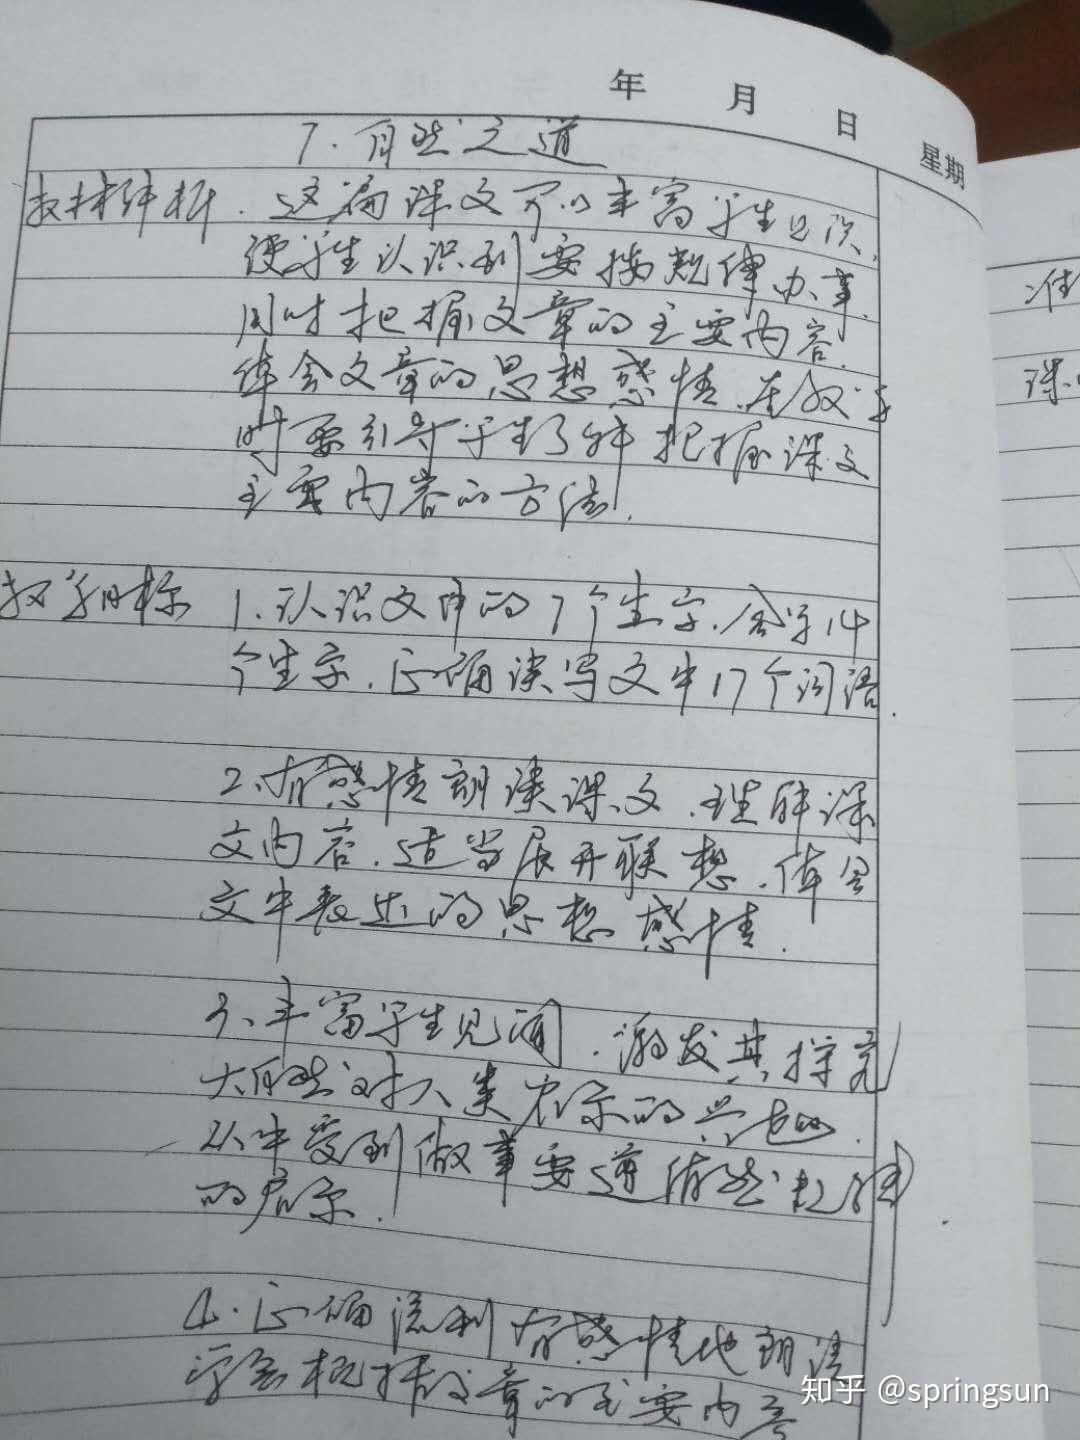 年 月 日 星期
7.自然之道
教材解析.这篇课文可以丰富学生见识,
使学生认识到要按规律办事.
同时把握文章的主要内容.
体会文章的思想感情.在教学
时要引导学生了解把握课文
主要内容的方法.
教学目标 1.认识文中的7个生字.会写14
个生字.正确读写文中17个词语.
2、有感情朗读课文.理解课
文内容.适当展开联想.体会
文中表达的思想感情.
3、丰富学生见闻.激发其探究
大自然对人类启示的兴趣.
从中受到做事要遵循自然规律
的启示.
4.正确流利有感情地朗读
学会概括文章的主要内容
准
课
知乎 @springsun